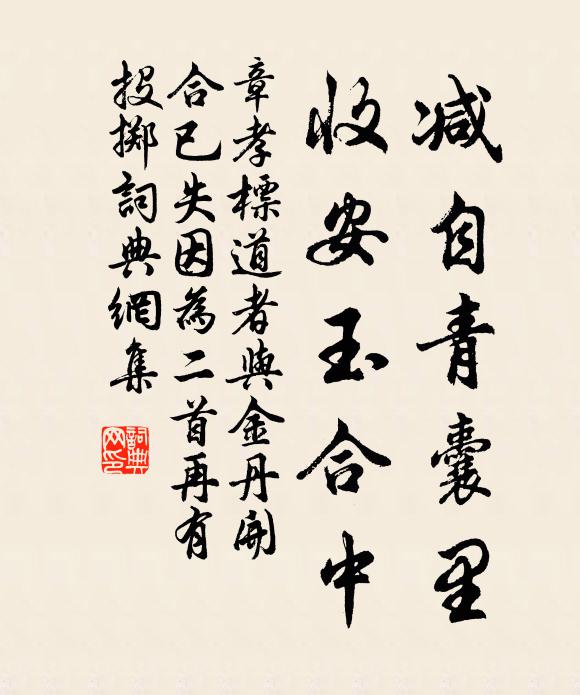 減自青囊里
收安玉合中
章孝標道者與金丹開
合已失因為二首再有
投擲詞典網集
詞典
网印